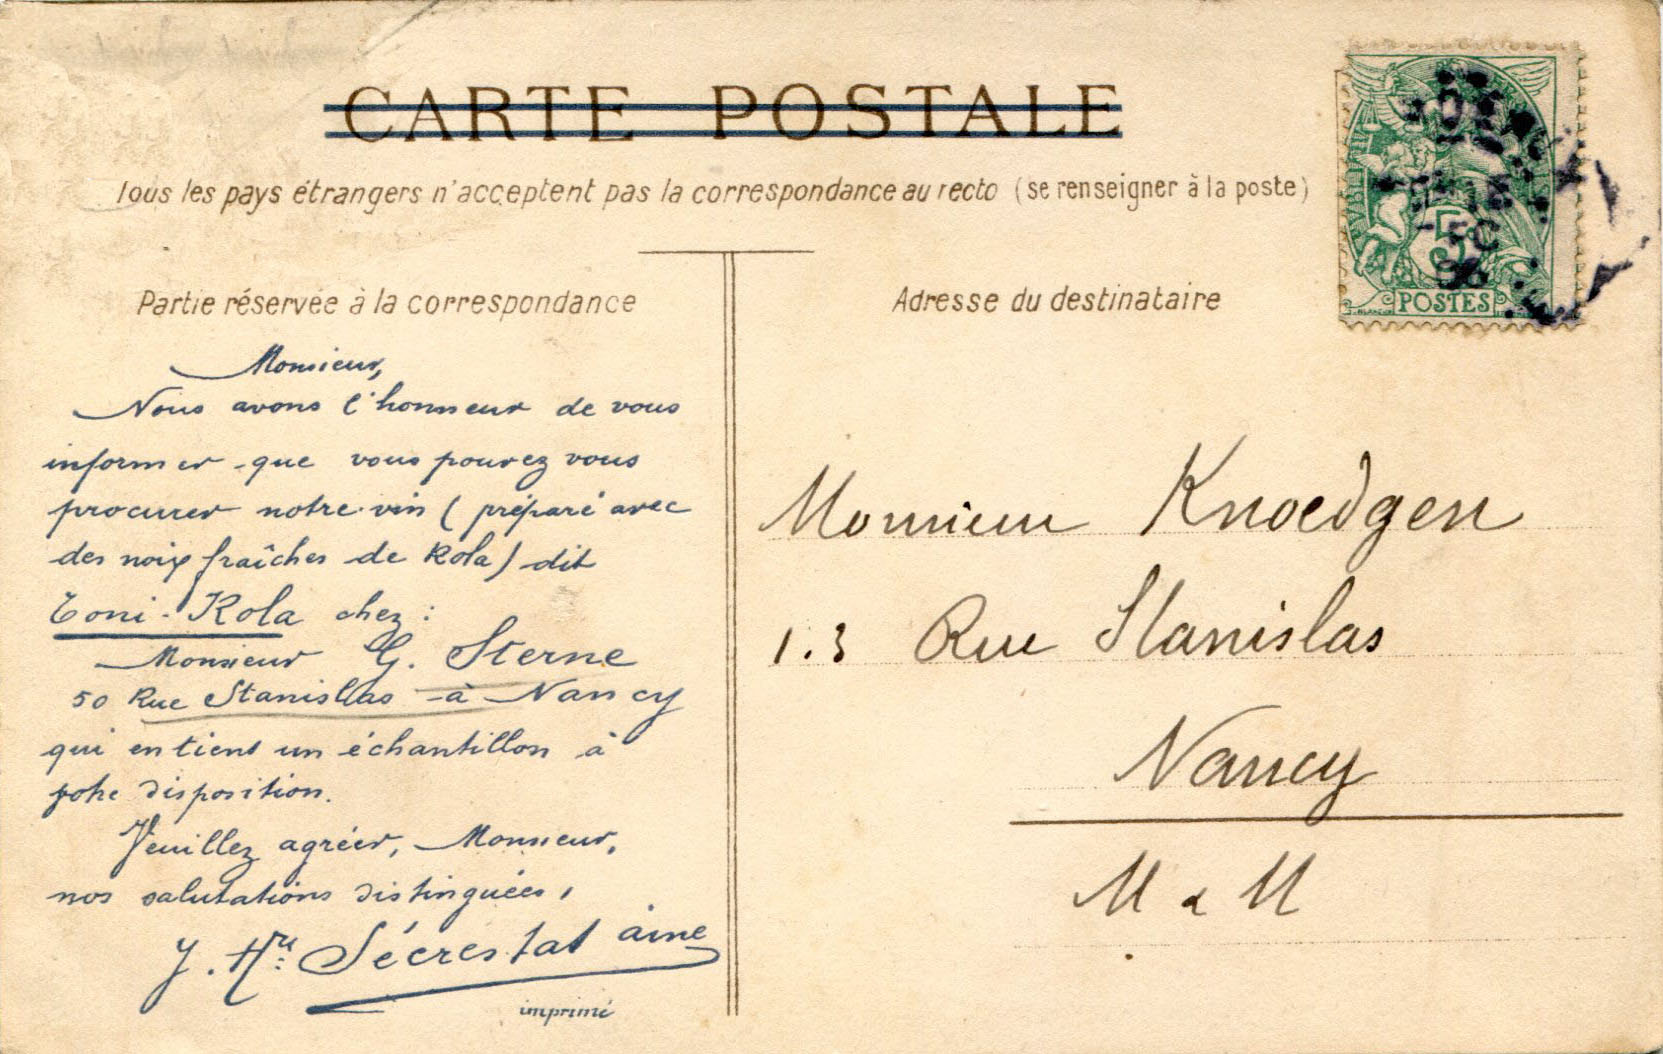 CARTE POSTALE
Tous les pays étrangers n'acceptent pas la correspondance au recto (se renseigner à la poste)
5c
POSTES
Partie réservée à la correspondance
Monsieur,
Nous avons l'honneur de vous
informer que vous pouvez vous
procurer notre vin (préparé avec
des noix fraîches de Kola) dit
Toni-Kola chez :
Monsieur G. Sterne
50 Rue Stanislas à Nancy
qui en tient un échantillon à
votre disposition.
Veuillez agréer, Monsieur,
nos salutations distinguées,
J. Hri: Sécrestat aîné
imprimé
Adresse du destinataire
Monsieur Knoedgen
13 Rue Stanislas
Nancy
M & M